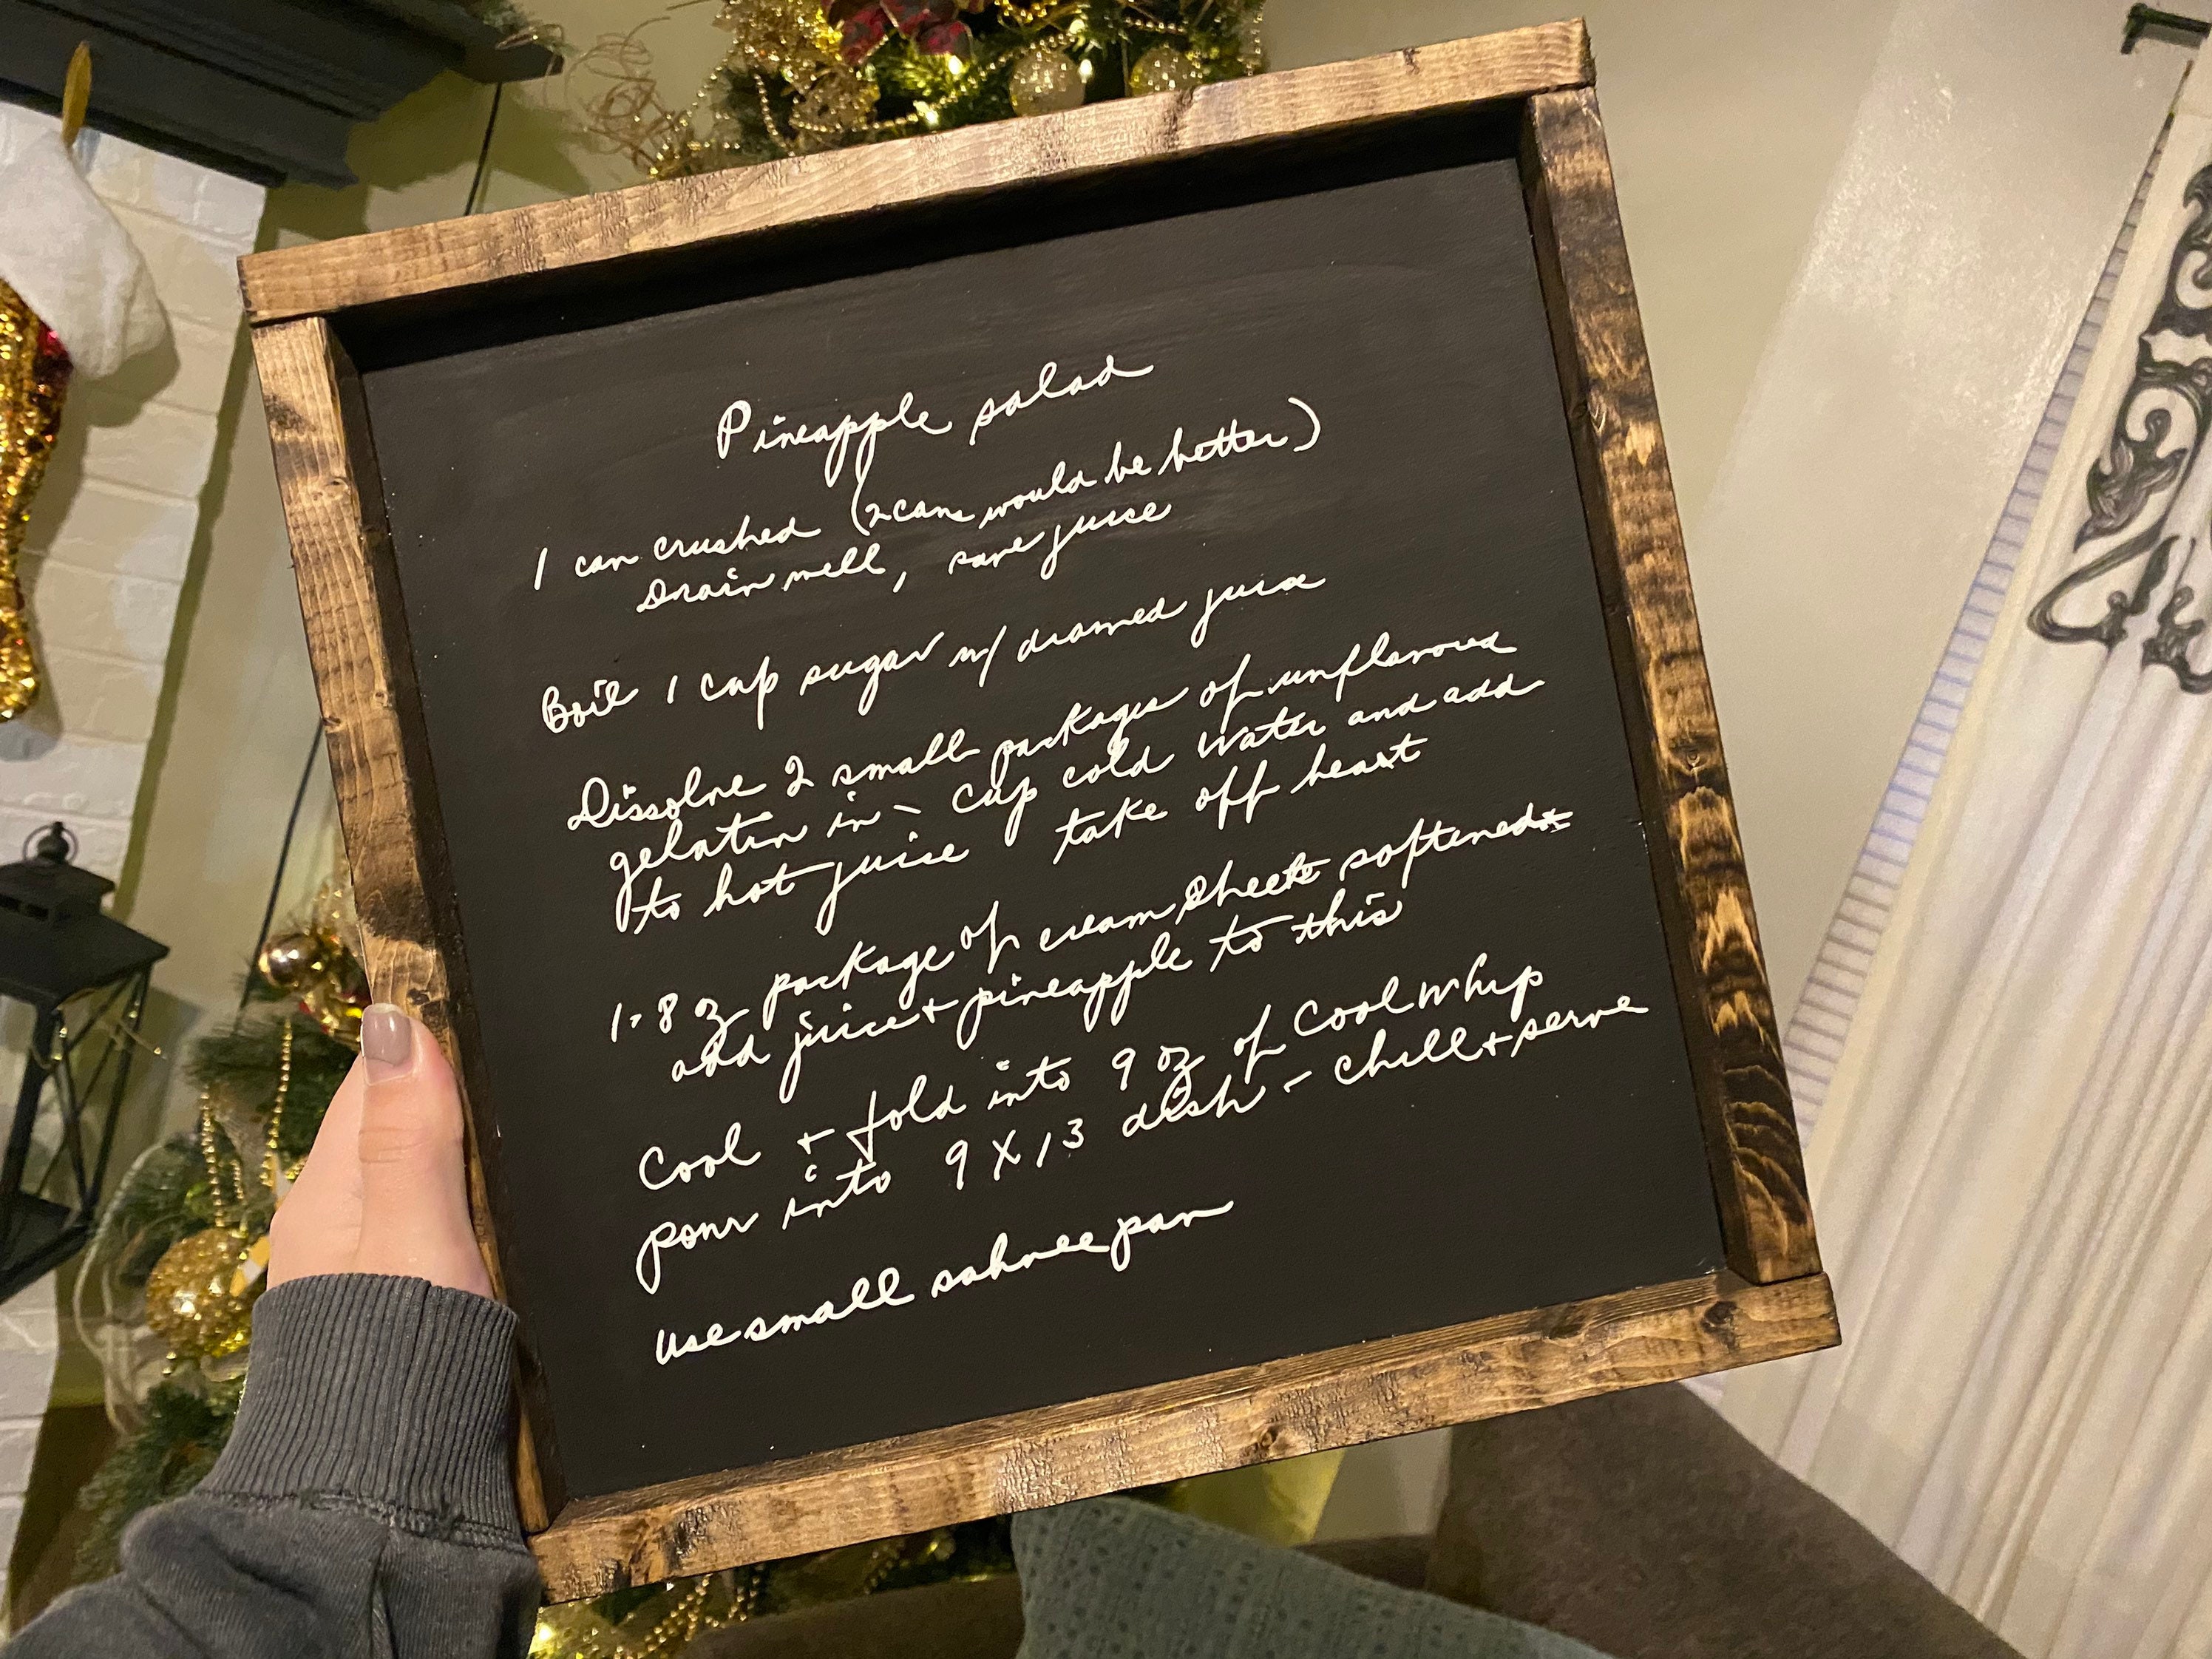 Pineapple salad
1 can crushed (2 cans would be better)
Drain well, save juice
Boil 1 cup sugar w/ drained juice
Dissolve 2 small packages of unflavored
gelatin in - cup cold water and add
to hot juice take off heat
1-8 oz package of cream cheese softened
add juice + pineapple to this
Cool + fold into 9 oz of Cool Whip
pour into 9 X 13 dish - chill + serve
Use small pan